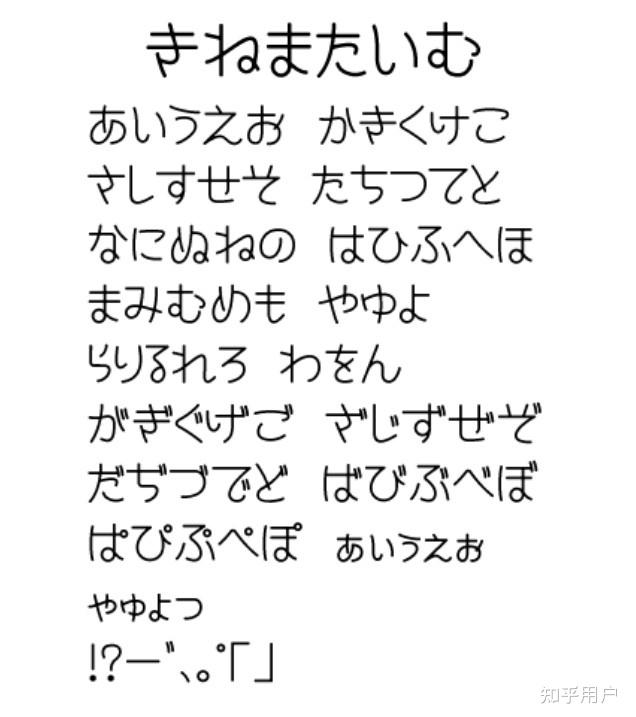 きねまたいむ
あいうえお かきくけこ
さしすせそ たちつてと
なにぬねの はひふへほ
まみむめも やゆよ
らりるれろ わをん
がぎぐげご ざじずぜぞ
だぢづでど ばびぶべぼ
ぱぴぷぺぽ ぁぃぅぇぉ
ゃゅょっ
!?ー゛、。゜「」
知乎用户